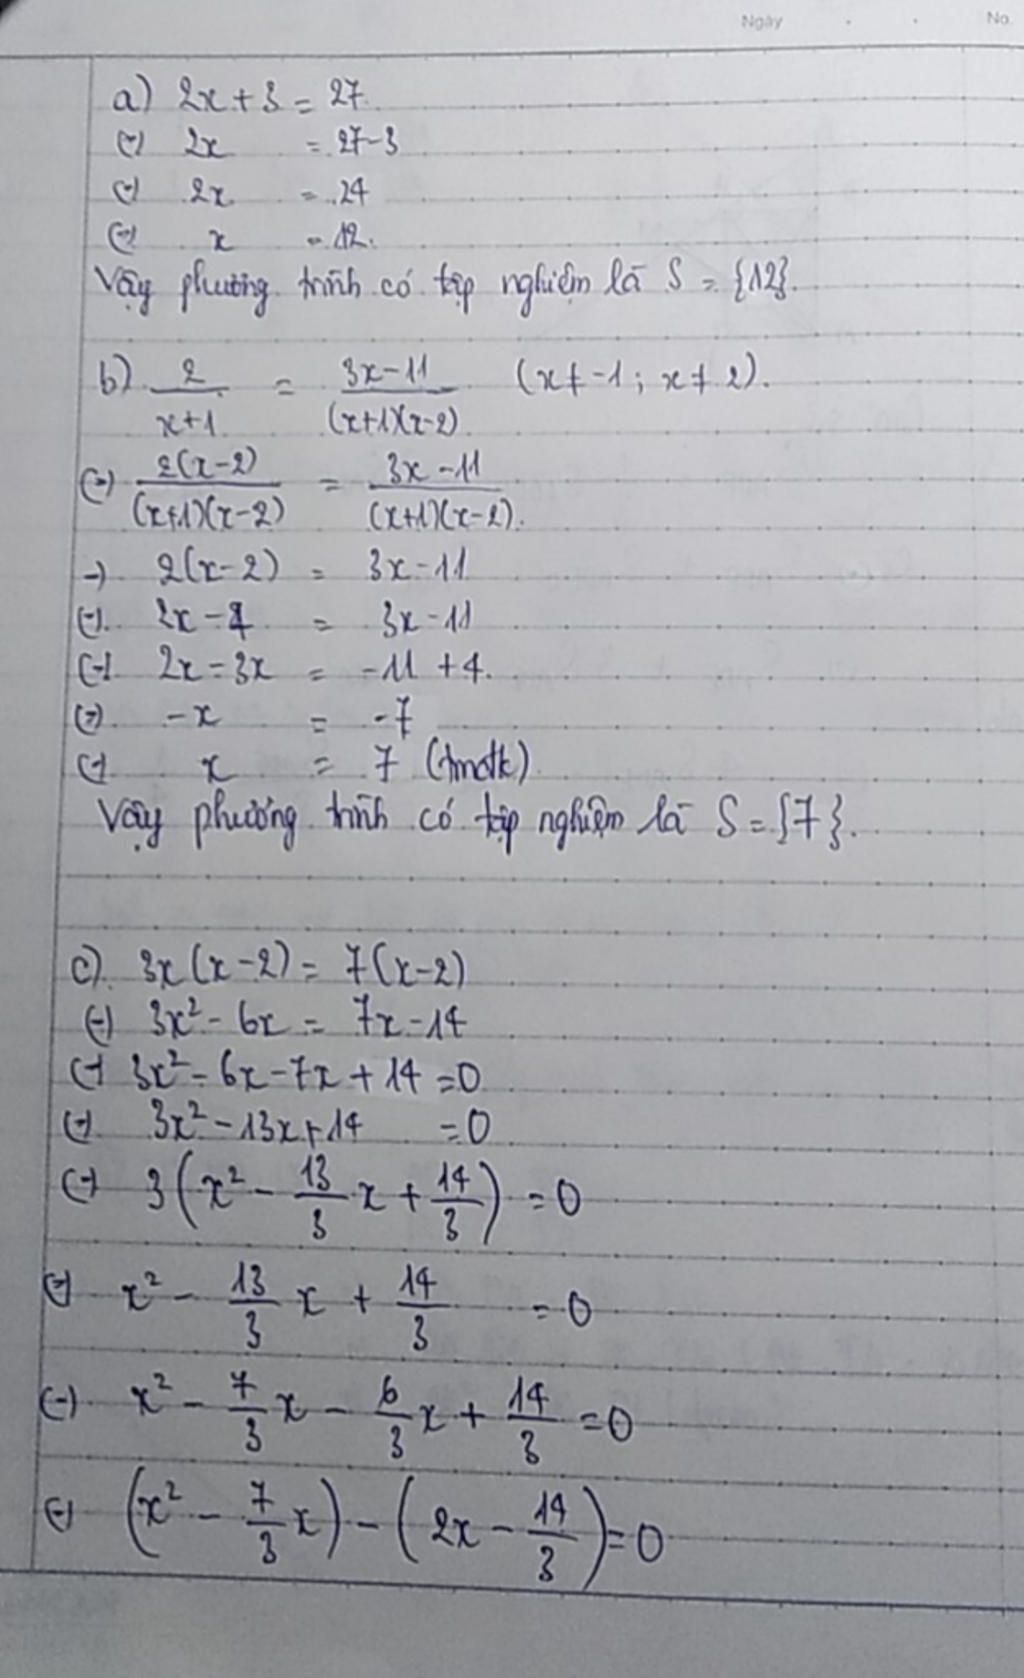 Ngày . . No.
a) 2x + 3 = 27
(=) 2x = 27 - 3
(=) 2x = 24
(=) x = 12.
Vậy phương trình có tập nghiệm là S = {12}.
b) 2/(x+1) = (3x-11)/((x+1)(x-2)) (x ≠ -1 ; x ≠ 2).
(=) 2(x-2)/((x+1)(x-2)) = (3x-11)/((x+1)(x-2)).
-) 2(x-2) = 3x-11
(=) 2x - 4 = 3x - 11
(=) 2x - 3x = -11 + 4.
(=) -x = -7
(=) x = 7 (tmđk)
Vậy phương trình có tập nghiệm là S = {7}.
c) 3x(x-2) = 7(x-2)
(=) 3x² - 6x = 7x - 14
(=) 3x² - 6x - 7x + 14 = 0
(=) 3x² - 13x + 14 = 0
(=) 3(x² - 13/3 x + 14/3) = 0
(=) x² - 13/3 x + 14/3 = 0
(=) x² - 7/3 x - 6/3 x + 14/3 = 0
(=) (x² - 7/3 x) - (2x - 14/3) = 0